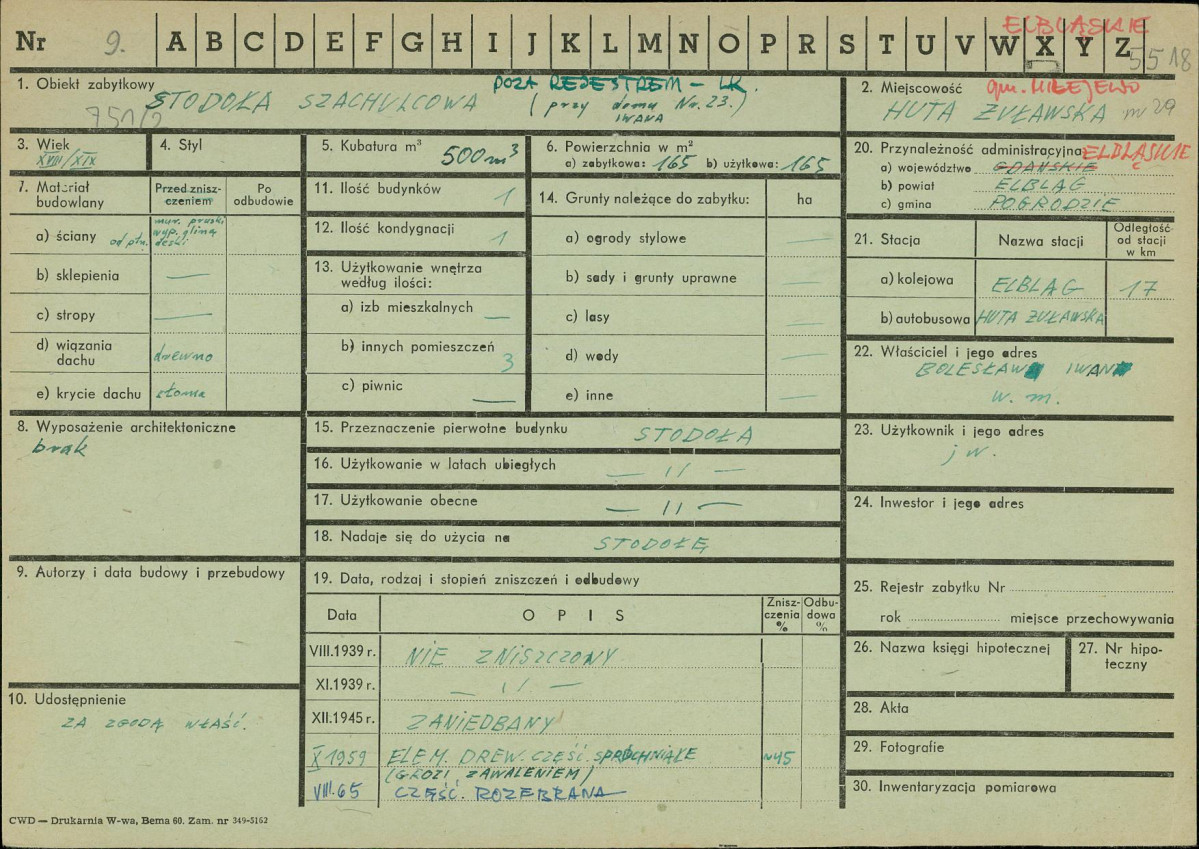 ELBLĄSKIE
Nr 9. A B C D E F G H I J K L M N O P R S T U V W X Y Z
5518
1. Obiekt zabytkowy POZA REJESTREM –
STODOŁA SZACHULCOWA (przy domu Nr. 23.)
IWANA
751/2
2. Miejscowość gm. MIŁEJEWO
HUTA ŻUŁAWSKA nr 29
3. Wiek
XVIII/XIX
4. Styl
5. Kubatura m³
500 m³
6. Powierzchnia w m²
a) zabytkowa: 165 b) użytkowa: 165
20. Przynależność administracyjna ELBLĄSKIE
a) województwo GDAŃSKIE
b) powiat ELBLĄG
c) gmina POGRODZIE
7. Materiał budowlany
Przed znisz-
czeniem
Po
odbudowie
a) ściany mur. pruski
wyp. gliną
od płn. deski
b) sklepienia —
c) stropy —
d) wiązania
dachu drewno
e) krycie dachu słoma
11. Ilość budynków 1
12. Ilość kondygnacji 1
13. Użytkowanie wnętrza
według ilości:
a) izb mieszkalnych —
b) innych pomieszczeń 3
c) piwnic —
14. Grunty należące do zabytku: ha
a) ogrody stylowe —
b) sady i grunty uprawne —
c) lasy —
d) wody —
e) inne —
21. Stacja Nazwa stacji Odległość
od stacji
w km
a) kolejowa ELBLĄG 17
b) autobusowa HUTA ŻUŁAWSKA
22. Właściciel i jego adres
BOLESŁAW IWAN
w. m.
8. Wyposażenie architektoniczne
brak
15. Przeznaczenie pierwotne budynku STODOŁA
16. Użytkowanie w latach ubiegłych — // —
17. Użytkowanie obecne — // —
18. Nadaje się do użycia na STODOŁĘ
23. Użytkownik i jego adres
j w.
24. Inwestor i jego adres
9. Autorzy i data budowy i przebudowy
19. Data, rodzaj i stopień zniszczeń i odbudowy
Data OPIS Znisz-
czenia
%
Odbu-
dowa
%
VIII.1939 r. NIE ZNISZCZONY
XI.1939 r. — // —
XII.1945 r. ZANIEDBANY
X 1959 ELEM. DREW. CZĘŚĆ. SPRÓCHNIAŁE ~45
(GROZI ZAWALENIEM)
VIII.65 CZĘŚĆ. ROZEBRANA
25. Rejestr zabytku Nr
rok miejsce przechowywania
26. Nazwa księgi hipotecznej
27. Nr hipo-
teczny
10. Udostępnienie
ZA ZGODĄ WŁAŚĆ.
28. Akta
29. Fotografie
30. Inwentaryzacja pomiarowa
CWD — Drukarnia W-wa, Bema 60. Zam. nr 349-5162